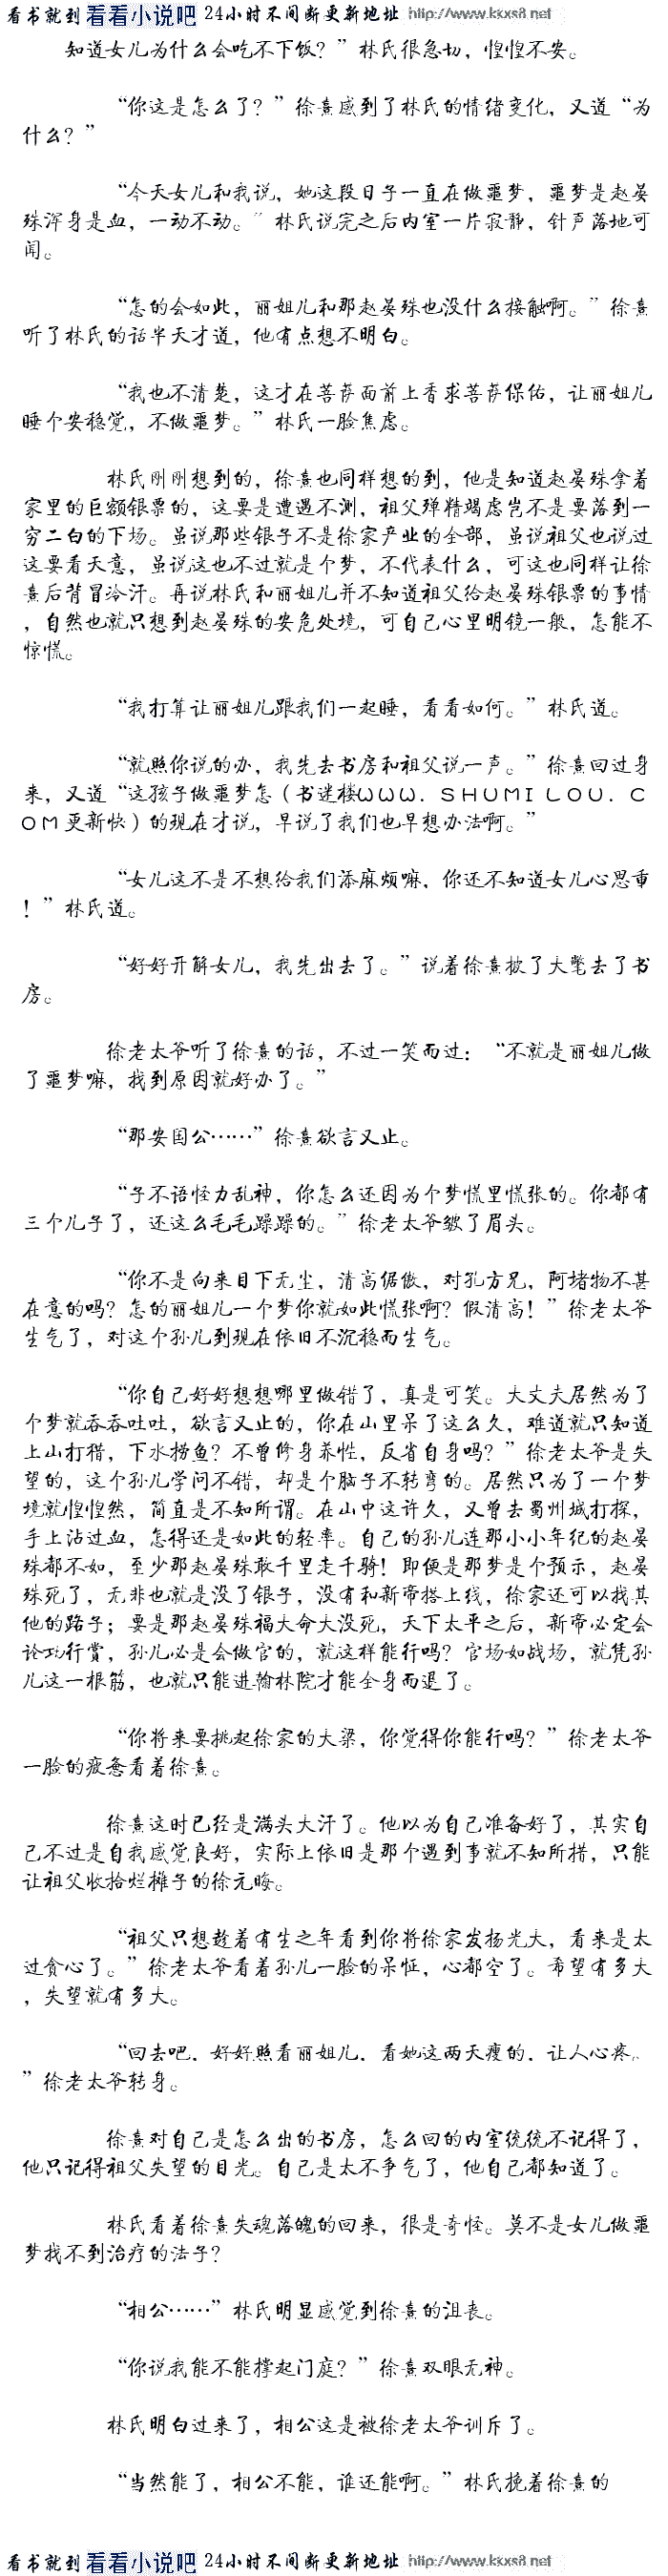 看书就到 看看小说吧 24小时不间断更新地址 http://www.kxxs8.net
知道女儿为什么会吃不下饭？”林氏很急切，惶惶不安。
“你这是怎么了？”徐熹感到了林氏的情绪变化，又道“为
什么？”
“今天女儿和我说，她这段日子一直在做噩梦，噩梦是赵晏
殊浑身是血，一动不动。”林氏说完之后内室一片寂静，针声落地可
闻。
“怎的会如此，丽姐儿和那赵晏殊也没什么接触啊。”徐熹
听了林氏的话半天才道，他有点想不明白。
“我也不清楚，这才在菩萨面前上香求菩萨保佑，让丽姐儿
睡个安稳觉，不做噩梦。”林氏一脸焦虑。
林氏刚刚想到的，徐熹也同样想的到，他是知道赵晏殊拿着
家里的巨额银票的，这要是遭遇不测，祖父殚精竭虑岂不是要落到一
穷二白的下场。虽说那些银子不是徐家产业的全部，虽说祖父也说过
这要看天意，虽说这也不过就是个梦，不代表什么，可这也同样让徐
熹后背冒冷汗。再说林氏和丽姐儿并不知道祖父给赵晏殊银票的事情
，自然也就只想到赵晏殊的安危处境，可自己心里明镜一般，怎能不
惊慌。
“我打算让丽姐儿跟我们一起睡，看看如何。”林氏道。
“就照你说的办，我先去书房和祖父说一声。”徐熹回过身
来，又道“这孩子做噩梦怎（书迷楼ＷＷＷ．ＳＨＵＭＩＬＯＵ．Ｃ
ＯＭ更新快）的现在才说，早说了我们也早想办法啊。”
“女儿这不是不想给我们添麻烦嘛，你还不知道女儿心思重
！”林氏道。
“好好开解女儿，我先出去了。”说着徐熹披了大氅去了书
房。
徐老太爷听了徐熹的话，不过一笑而过：“不就是丽姐儿做
了噩梦嘛，找到原因就好办了。”
“那安国公……”徐熹欲言又止。
“子不语怪力乱神，你怎么还因为个梦慌里慌张的。你都有
三个儿子了，还这么毛毛躁躁的。”徐老太爷皱了眉头。
“你不是向来目下无尘，清高倨傲，对孔方兄，阿堵物不甚
在意的吗？怎的丽姐儿一个梦你就如此慌张啊？假清高！”徐老太爷
生气了，对这个孙儿到现在依旧不沉稳而生气。
“你自己好好想想哪里做错了，真是可笑。大丈夫居然为了
个梦就吞吞吐吐，欲言又止的，你在山里呆了这么久，难道就只知道
上山打猎，下水捞鱼？不曾修身养性，反省自身吗？”徐老太爷是失
望的，这个孙儿学问不错，却是个脑子不转弯的。居然只为了一个梦
境就惶惶然，简直是不知所谓。在山中这许久，又曾去蜀州城打探，
手上沾过血，怎得还是如此的轻率。自己的孙儿连那小小年纪的赵晏
殊都不如，至少那赵晏殊敢千里走千骑！即便是那梦是个预示，赵晏
殊死了，无非也就是没了银子，没有和新帝搭上线，徐家还可以找其
他的路子；要是那赵晏殊福大命大没死，天下太平之后，新帝必定会
论功行赏，孙儿必是会做官的，就这样能行吗？官场如战场，就凭孙
儿这一根筋，也就只能进翰林院才能全身而退了。
“你将来要挑起徐家的大梁，你觉得你能行吗？”徐老太爷
一脸的疲惫看着徐熹。
徐熹这时已经是满头大汗了。他以为自己准备好了，其实自
己不过是自我感觉良好，实际上依旧是那个遇到事就不知所措，只能
让祖父收拾烂摊子的徐元晦。
“祖父只想趁着有生之年看到你将徐家发扬光大，看来是太
过贪心了。”徐老太爷看着孙儿一脸的呆怔，心都空了。希望有多大
，失望就有多大。
“回去吧，好好照看丽姐儿，看她这两天瘦的，让人心疼。
”徐老太爷转身。
徐熹对自己是怎么出的书房，怎么回的内室统统不记得了，
他只记得祖父失望的目光。自己是太不争气了，他自己都知道了。
林氏看着徐熹失魂落魄的回来，很是奇怪。莫不是女儿做噩
梦找不到治疗的法子？
“相公……”林氏明显感觉到徐熹的沮丧。
“你说我能不能撑起门庭？”徐熹双眼无神。
林氏明白过来了，相公这是被徐老太爷训斥了。
“当然能了，相公不能，谁还能啊。”林氏挽着徐熹的
看书就到 看看小说吧 24小时不间断更新地址 http://www.kxxs8.net